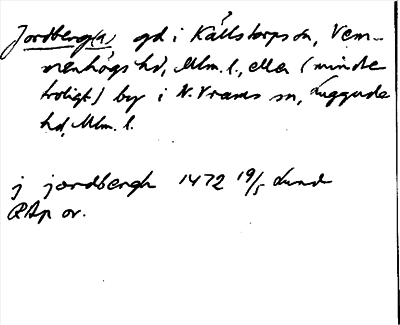 Jordberg(a) gd i Källstorps sn, Vem-
menhögs hd, Mlm. l., eller (mindre
troligt) by i N. Vrams sn, Luggude
hd, Mlm. l.
j jordbergh 1472 19/5 Lund
RAp or.